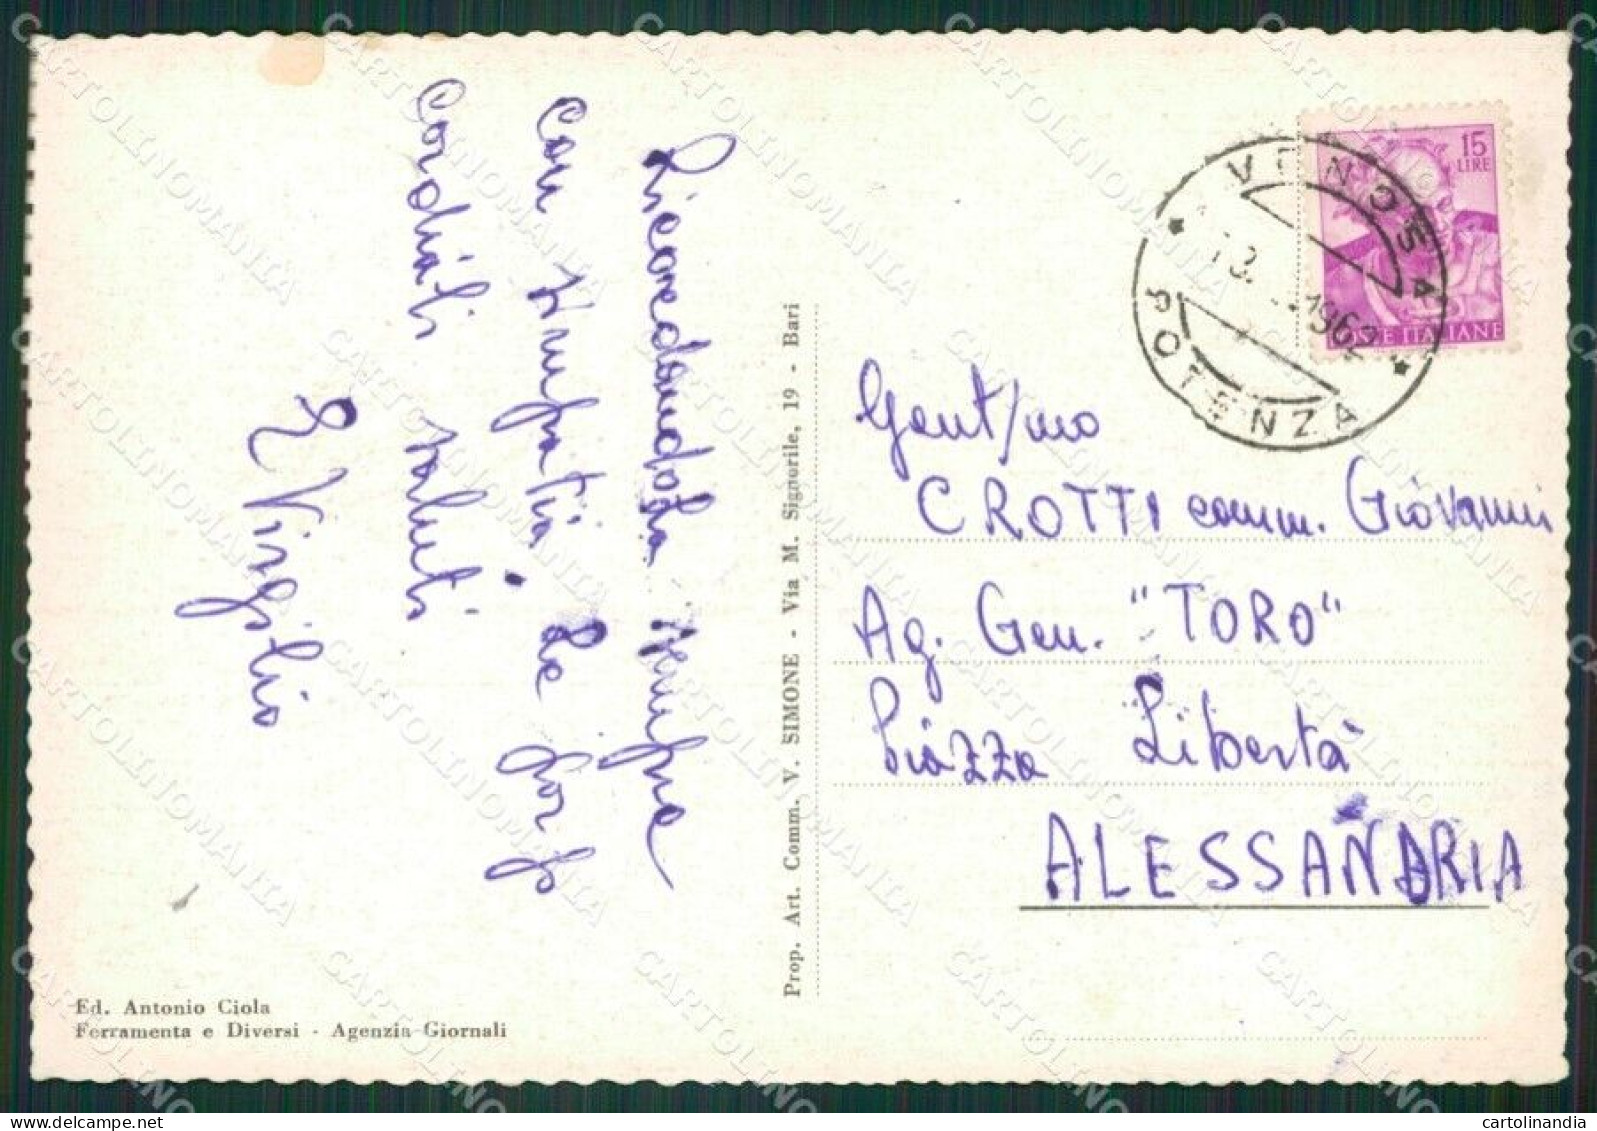 Ricordandola sempre
con simpatia. Le porgo
cordiali saluti
Virgilio
Prop. Art. Comm. V. SIMONE - Via M. Signorile, 19 - Bari
Ed. Antonio Ciola
Ferramenta e Diversi - Agenzia Giornali
15
LIRE
POSTE ITALIANE
VENOSA
13. 1962
POTENZA
Gent/mo
CROTTI comm. Giovanni
Ag. Gen. "TORO"
Piazza Libertà
ALESSANDRIA
CARTOLINOMANIA
cartolinandia